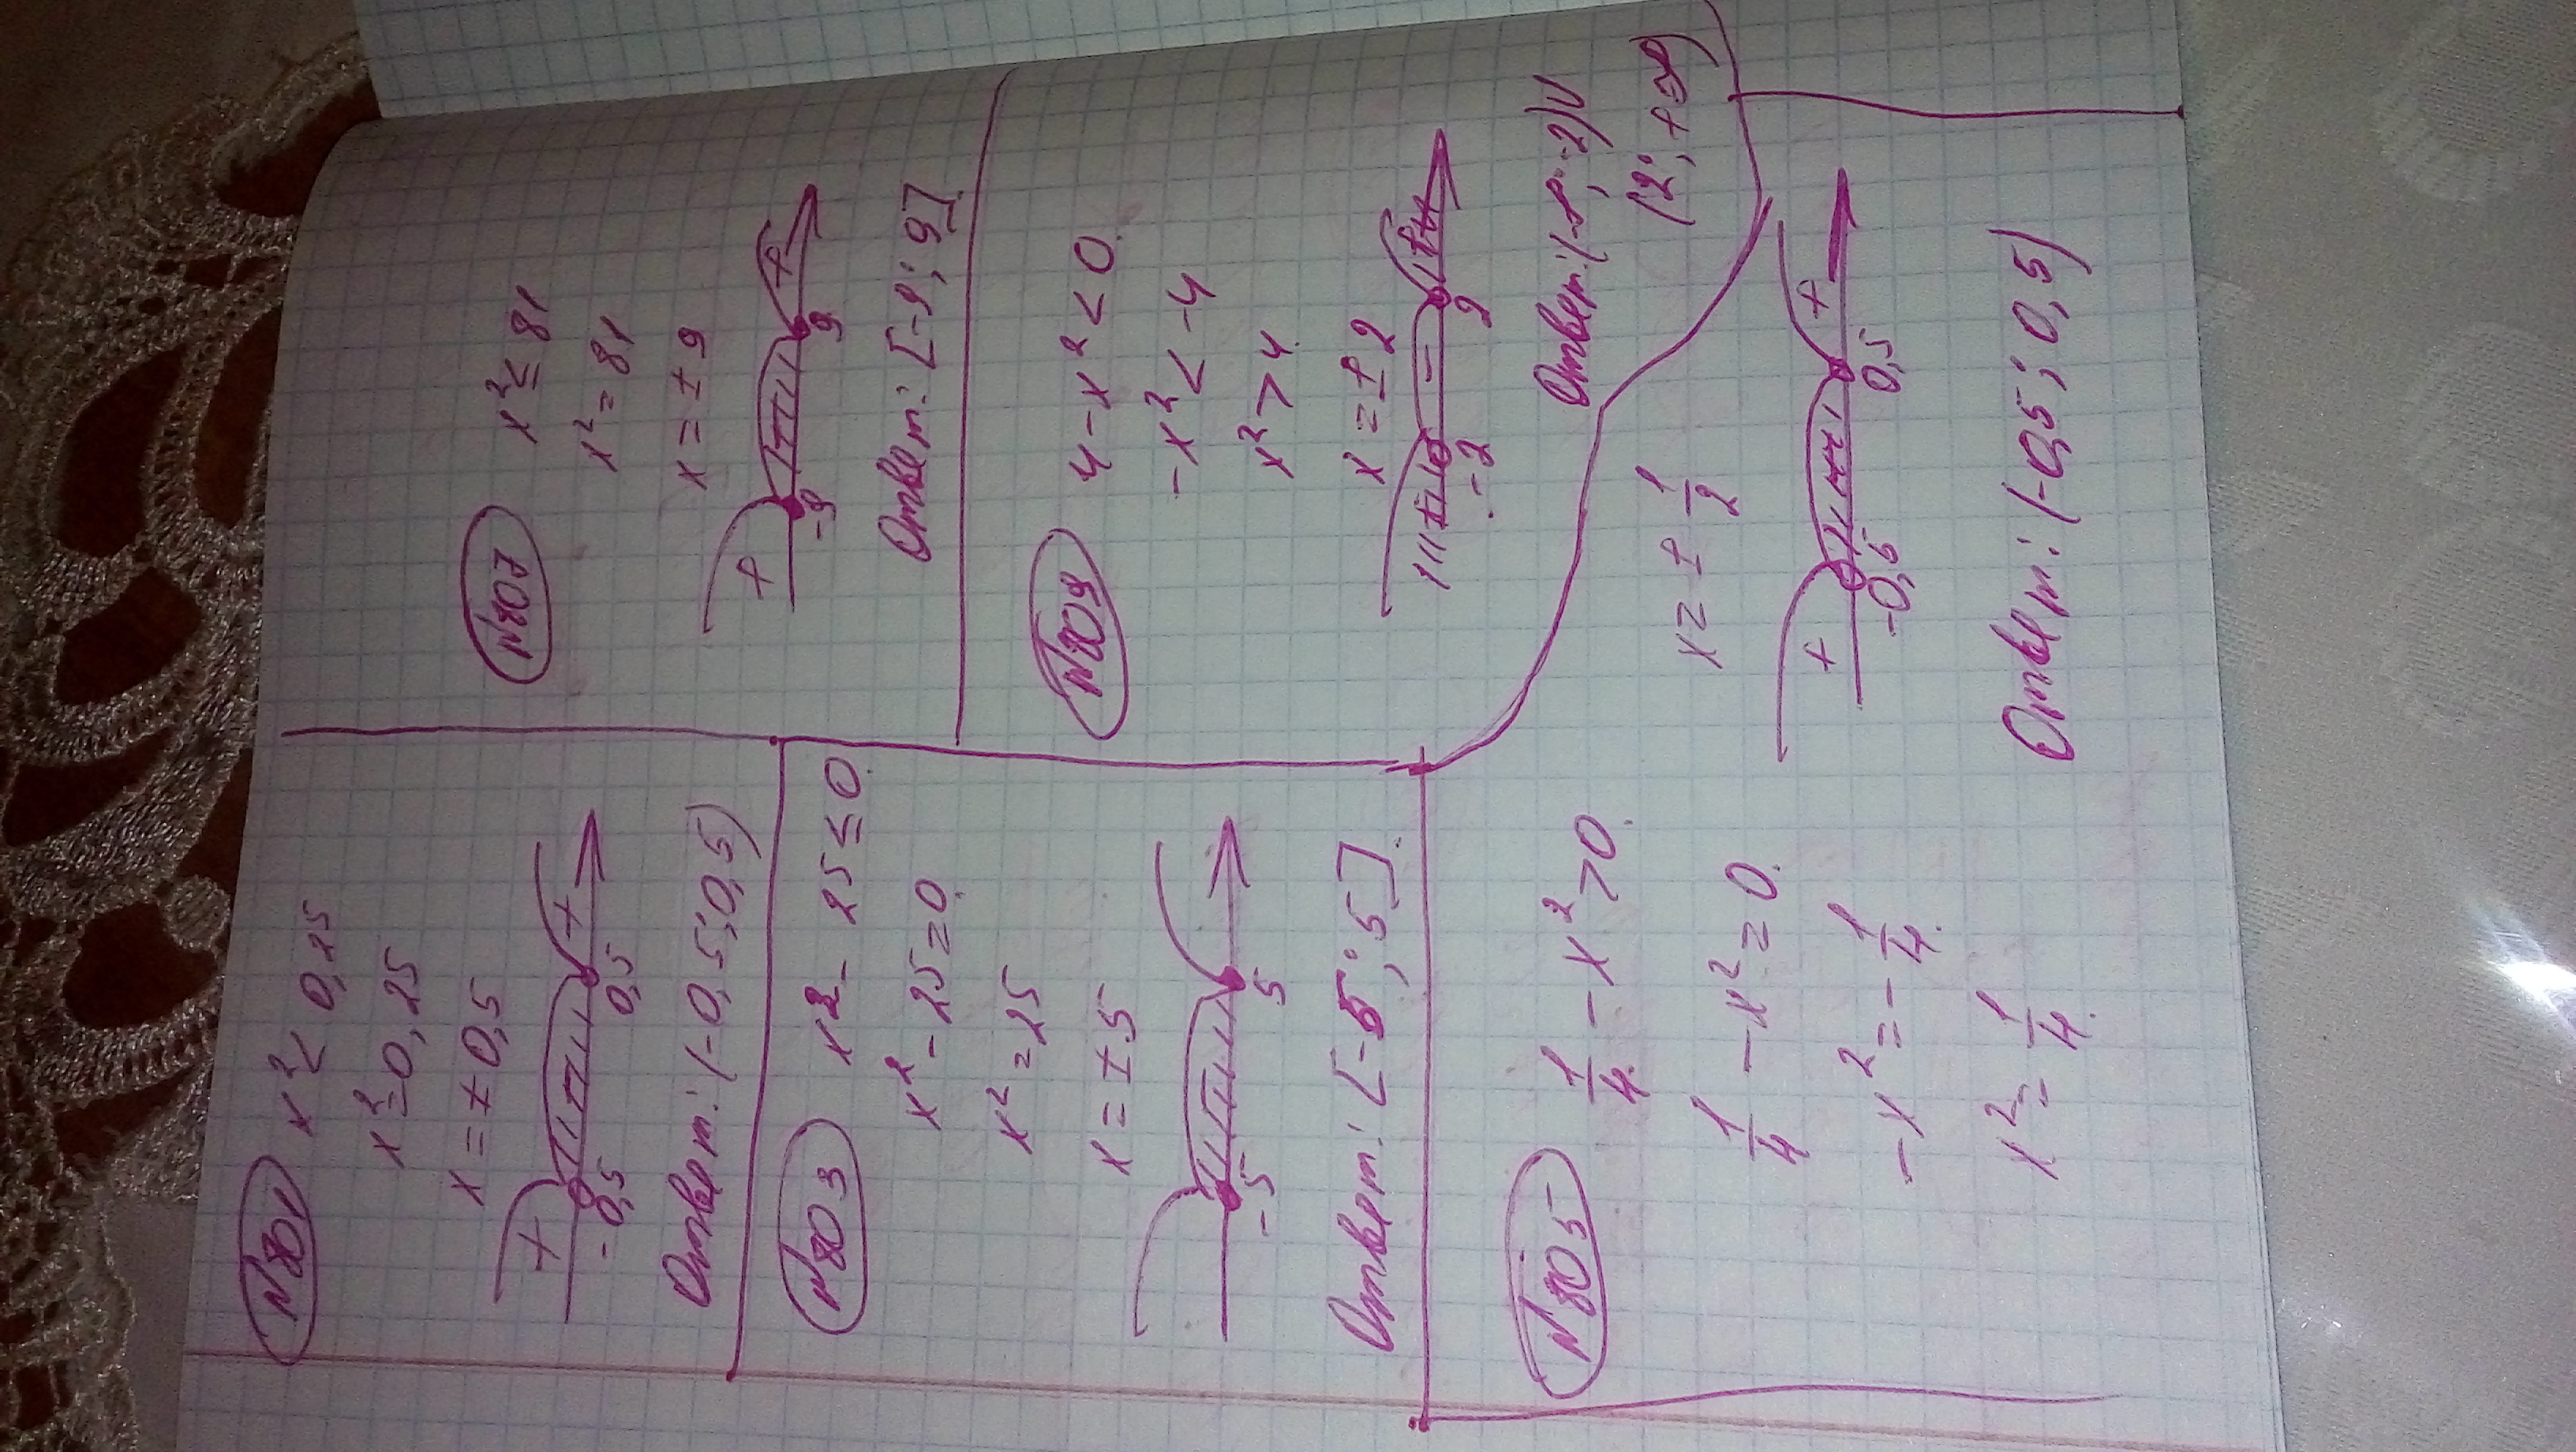 N801
x² < 0,25
x² = 0,25
x = ± 0,5
+ + +
-0,5 0,5
Ответ: (-0,5; 0,5)
N803
x2 - 25 ≤ 0.
x² - 25 = 0.
x² = 25
x = ± 5
-5 5
Ответ: [-5; 5].
N805
1/4 - x² > 0.
1/4 - x² = 0.
-x² = -1/4.
x² = 1/4.
x = ± 1/2
+ +
-0,5 0,5
Ответ: (-0,5; 0,5)
N807
x² ≤ 81
x² = 81
x = ± 9
+ +
-9 9
Ответ: [-9; 9].
N809
4 - x² < 0.
-x² < -4
x² > 4.
x = ± 2
-
-2 2
Ответ: (-∞; -2)U
(2; +∞)